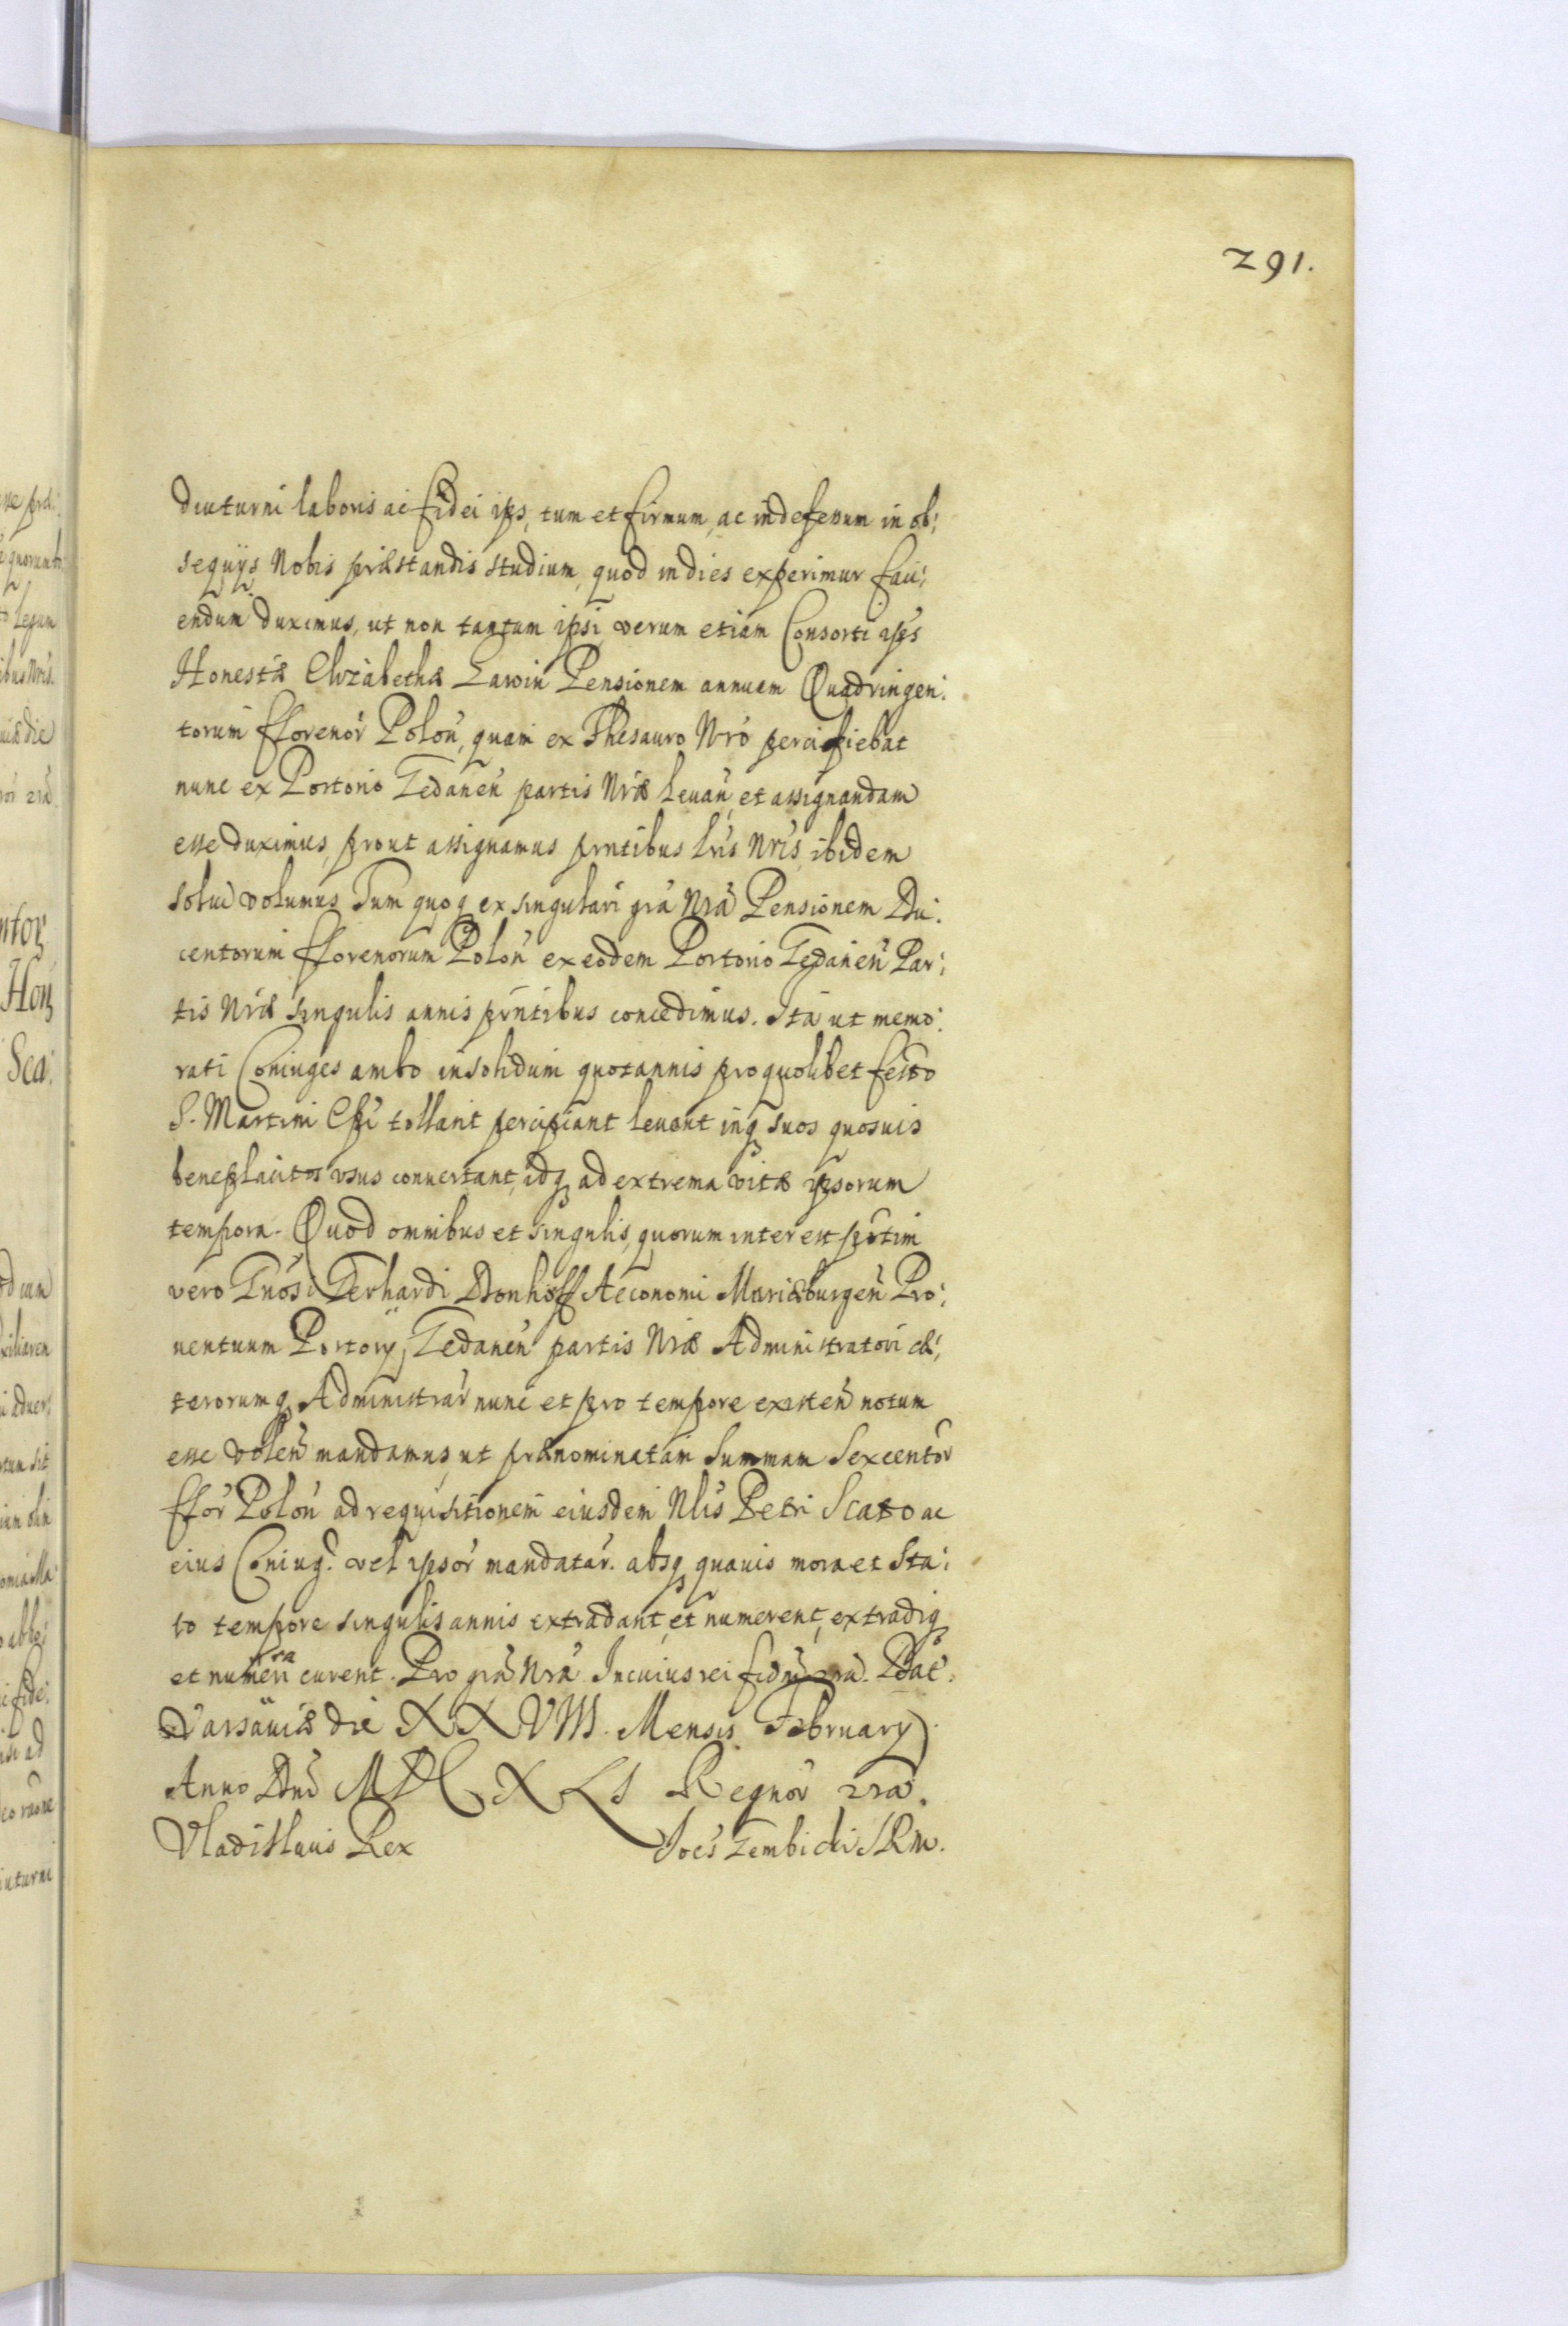 291.
diuturni laboris ac fidei ips, tum et firmum, ac indefessum in ob:
sequijs Nobis præstandis studium, quod indies experimur faci:
endum duximus, ut non tantum ipsi, verum etiam Consorti ips
Honestæ Elizabethæ Lawin Pensionem annuam Quadringen:
torum fflorenor Polon, quam ex Thesauro Nro percipiebat
nunc ex Portorio Gedanen partis Nræ leuan, et assignandam
esse duximus, prout assignamus pntibus lris Nris, ibidem
solui volumus. Tum quoq ex singulari gra Nra Pensionem Du:
centorum fflorenorum Polon ex eodem Portorio Gedanen Par:
tis Nræ singulis annis pntibus concedimus. Ita ut memo:
rati Coniuges ambo insolidum quotannis pro quolibet festo
S. Martini Epi tollant percipiant leuent inq suos quosuis
beneplacitos usus conuertant, idq ad extrema vitæ ipsorum
tempora. Quod omnibus et singulis, quorum interest, pstim
vero Gnosi Gerhardi Donhoff Aeconomi Mariæburgen Pro:
uentuum Portorij Gedanen partis Nræ Administratori cæ:
terorumq Administrar nunc et pro tempore existen notum
esse volen mandamus, ut prænominatam Summam Sexcentor
fflor Polon ad requisitionem eiusdem Nlis Petri Scato ac
eius Coniug. vel ipsor mandatar. absq quauis mora et Sta:
to tempore singulis annis extradant, et numerent, extradiq
et numerari curent. Pro gra Nra In cuius rei fidem
Varsauiæ die XXVIII. Mensis February
Anno Dni MDCXLI Regnor
Vladislaus Rex Joes Gembicki SRM.